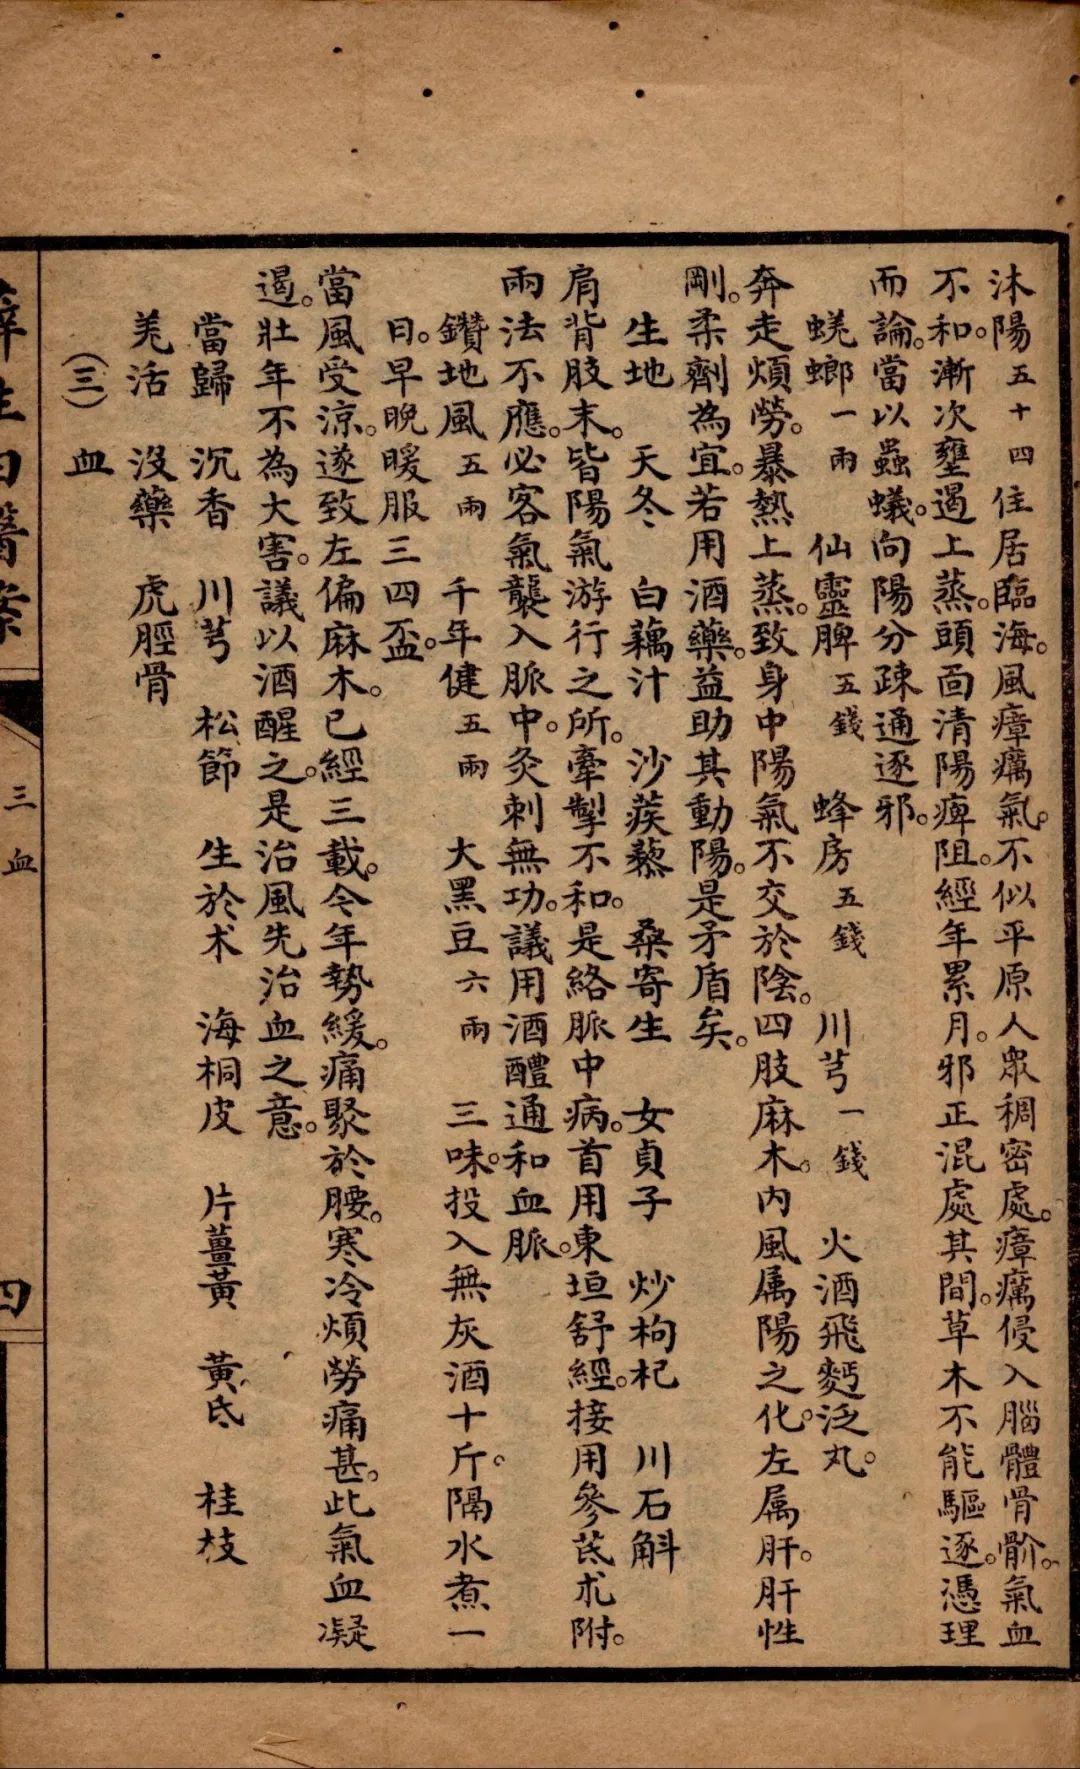 沐陽五十四住居臨海。風瘴癘氣。不似平原人眾稠密處。瘴癘侵入腦體骨骱。氣血
不和。漸次壅遏上蒸。頭面清陽痺阻。經年累月。邪正混處其間。草木不能驅逐。憑理
而論。當以蟲蟻。向陽分疎通逐邪。
蜣螂一兩　仙靈脾五錢　蜂房五錢　川芎一錢　火酒飛麪泛丸。
奔走煩勞。暴熱上蒸。致身中陽氣不交於陰。四肢麻木。內風属陽之化。左属肝。肝性
剛。柔劑為宜。若用酒藥。益助其動陽。是矛盾矣。
生地　天冬　白藕汁　沙蒺藜　桑寄生　女貞子　炒枸杞　川石斛
肩背肢末。皆陽氣游行之所。牽掣不和。是絡脈中病。首用東垣舒經。接用參芪朮附。
兩法不應。必客氣襲入脈中。灸刺無功。議用酒醴通和血脈。
鑽地風五兩　千年健五兩　大黑豆六兩　三味。投入無灰酒十斤。隔水煮一
日。早晚暖服三四盃。
當風受涼。遂致左偏麻木。已經三載。今年勢緩。痛聚於腰。寒冷煩勞痛甚。此氣血凝
遏。壯年不為大害。議以酒醒之。是治風先治血之意。
當歸　沉香　川芎　松節　生於术　海桐皮　片薑黃　黃氐　桂枝
羌活　沒藥　虎脛骨
（三）血
三血
四